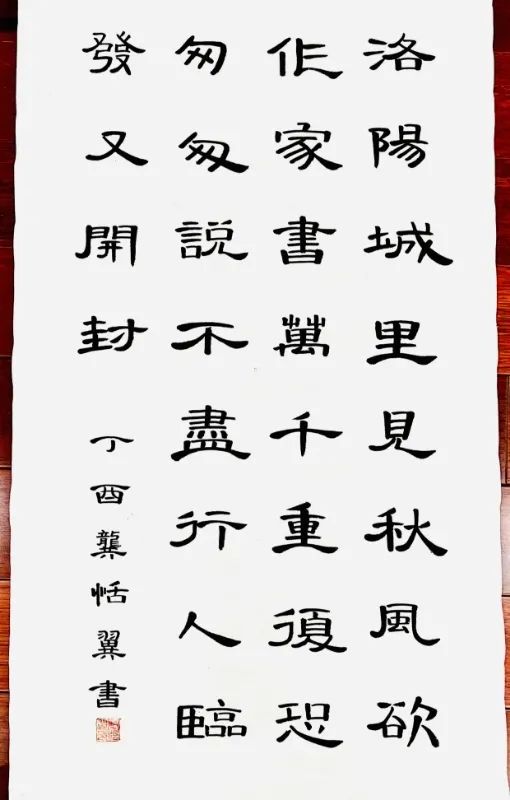 洛陽城里見秋風欲
作家書萬千重復恐
匆匆説不盡行人臨
發又開封
丁酉龔恬翼書